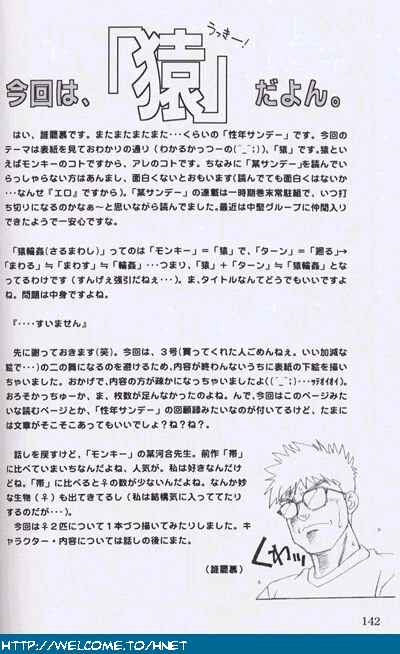 うっきー!
今回は、「猿」だよん。
はい、誰闇慕です。またまたまたまた・・・くらいの「性年サンデー」です。今回の
テーマは表紙を見ておわかりの通り（わかるかっつーの(^_^;)）、「猿」です。猿とい
えばモンキーのコトですから、アレのコトです。ちなみに「某サンデー」を読んでい
らっしゃらない方はあんまし、面白くないとおもいます(読んでても面白くはないか
・・・なんせ『エロ』ですから)。「某サンデー」の連載は一時期巻末常駐組で、いつ打
ち切りになるのかなぁ～と思いながら読んでました。最近は中堅グループに仲間入り
できたようで一安心ですな。
「猿輪姦(さるまわし)」ってのは「モンキー」＝「猿」で、「ターン」＝「廻る」→
「まわる」≒「まわす」≒「輪姦」・・・つまり、「猿」＋「ターン」≒「猿輪姦」とな
ってるわけです（すんげぇ強引だねぇ・・・）。ま、タイトルなんてどうでもいいですよ
ね。問題は中身ですよね。
『・・・・すいません』
先に謝っておきます(笑)。今回は、３号(買ってくれた人ごめんねぇ。いい加減な
絵で・・・)の二の舞になるのを避けるため、内容が終わんないうちに表紙の下絵に描い
ちゃいました。おかげで、内容の方が疎かになっちゃいましたよ((^_^;)・・・ｯﾃｵｲｵｲ)。
おろそかっちゅーか、ま、枚数が足んなかったのよね。んで、今回はこのページみた
いな読むページとか、「性年サンデー」の回顧録みたいなのが付いてるけど、たまに
は文章がそこそこあってもいいでしょ？ね？ね？。
話しを戻すけど、「モンキー」の某河合先生。前作「帯」
に比べていまいちなんだよね、人気が。私は好きなんだけ
どね。「帯」に比べると♀の数が少ないんだよね。なんか妙
な生物（♀）も出てきてるし（私は結構気に入っててたり
するのだが・・・）。
今回は♀２匹について１本づつ描いてみたりしました。キ
ャラクター・内容については話しの後にまた。
（誰闇慕）
くわっ
142
HTTP://WELCOME.TO/HNET